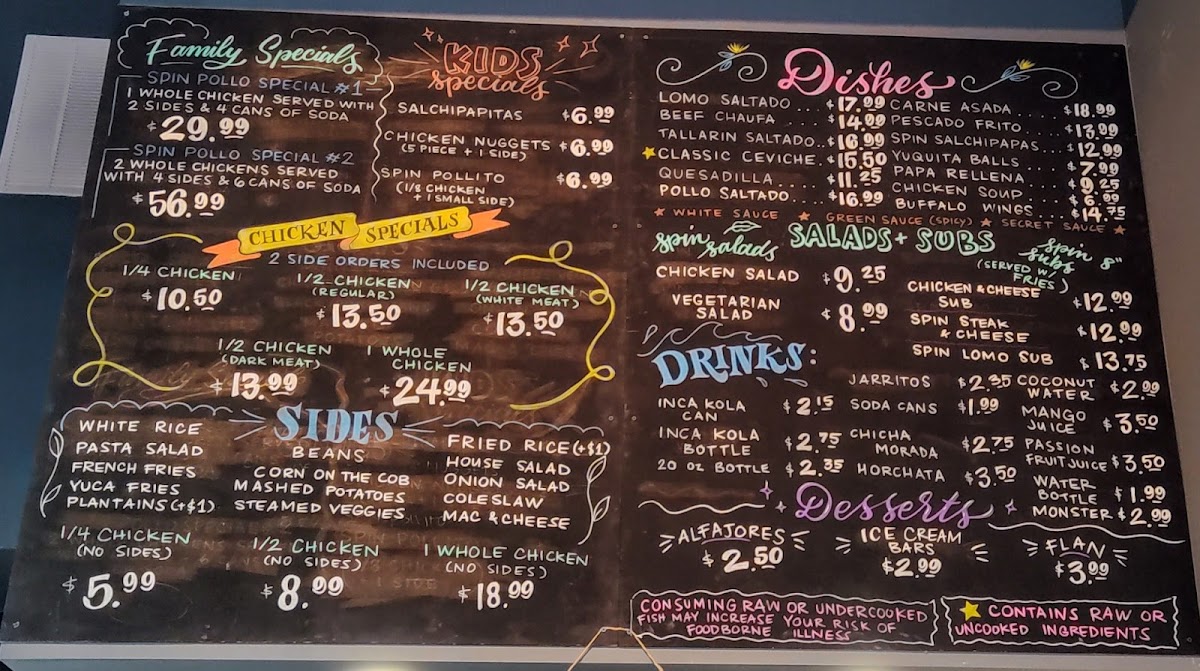 Family Specials
SPIN POLLO SPECIAL #1
1 WHOLE CHICKEN SERVED WITH
2 SIDES & 4 CANS OF SODA
$29.99
SPIN POLLO SPECIAL #2
2 WHOLE CHICKENS SERVED
WITH 4 SIDES & 6 CANS OF SODA
$56.99
KIDS
specials
SALCHIPAPITAS $6.99
CHICKEN NUGGETS $6.99
(5 PIECE + 1 SIDE)
SPIN POLLITO $6.99
(1/8 CHICKEN
+ 1 SMALL SIDE)
CHICKEN SPECIALS
2 SIDE ORDERS INCLUDED
1/4 CHICKEN
$10.50
1/2 CHICKEN
(REGULAR)
$13.50
1/2 CHICKEN
(WHITE MEAT)
$13.50
1/2 CHICKEN
(DARK MEAT)
$13.99
1 WHOLE
CHICKEN
$24.99
SIDES
WHITE RICE
PASTA SALAD
FRENCH FRIES
YUCA FRIES
PLANTAINS (+$1)
BEANS
CORN ON THE COB
MASHED POTATOES
STEAMED VEGGIES
FRIED RICE (+$1)
HOUSE SALAD
ONION SALAD
COLESLAW
MAC & CHEESE
1/4 CHICKEN
(NO SIDES)
$5.99
1/2 CHICKEN
(NO SIDES)
$8.99
1 WHOLE CHICKEN
(NO SIDES)
$18.99
Dishes
LOMO SALTADO... $17.99
BEEF CHAUFA .... $14.99
TALLARIN SALTADO.. $16.99
CLASSIC CEVICHE. $15.50
QUESADILLA ..... $11.25
POLLO SALTADO... $16.99
CARNE ASADA .... $18.99
PESCADO FRITO.... $13.99
SPIN SALCHIPAPAS... $12.99
YUQUITA BALLS ... $7.99
PAPA RELLENA .... $9.25
CHICKEN SOUP .... $6.99
BUFFALO WINGS ... $14.75
★ WHITE SAUCE ★ GREEN SAUCE (SPICY) ★ SECRET SAUCE ★
SALADS + SUBS
spin
salads
CHICKEN SALAD $9.25
VEGETARIAN
SALAD $8.99
spin
subs 8"
(SERVED W/
FRIES)
CHICKEN & CHEESE
SUB $12.99
SPIN STEAK
& CHEESE $12.99
SPIN LOMO SUB $13.75
DRINKS:
INCA KOLA
CAN $2.15
INCA KOLA
BOTTLE $2.75
20 OZ BOTTLE $2.35
JARRITOS $2.35
SODA CANS $1.99
CHICHA
MORADA $2.75
HORCHATA $3.50
COCONUT
WATER $2.99
MANGO
JUICE $3.50
PASSION
FRUIT JUICE $3.50
WATER
BOTTLE $1.99
MONSTER $2.99
Desserts
ALFAJORES
$2.50
ICE CREAM
BARS
$2.99
FLAN
$3.99
CONSUMING RAW OR UNDERCOOKED
FISH MAY INCREASE YOUR RISK OF
FOODBORNE ILLNESS
★ CONTAINS RAW OR
UNCOOKED INGREDIENTS